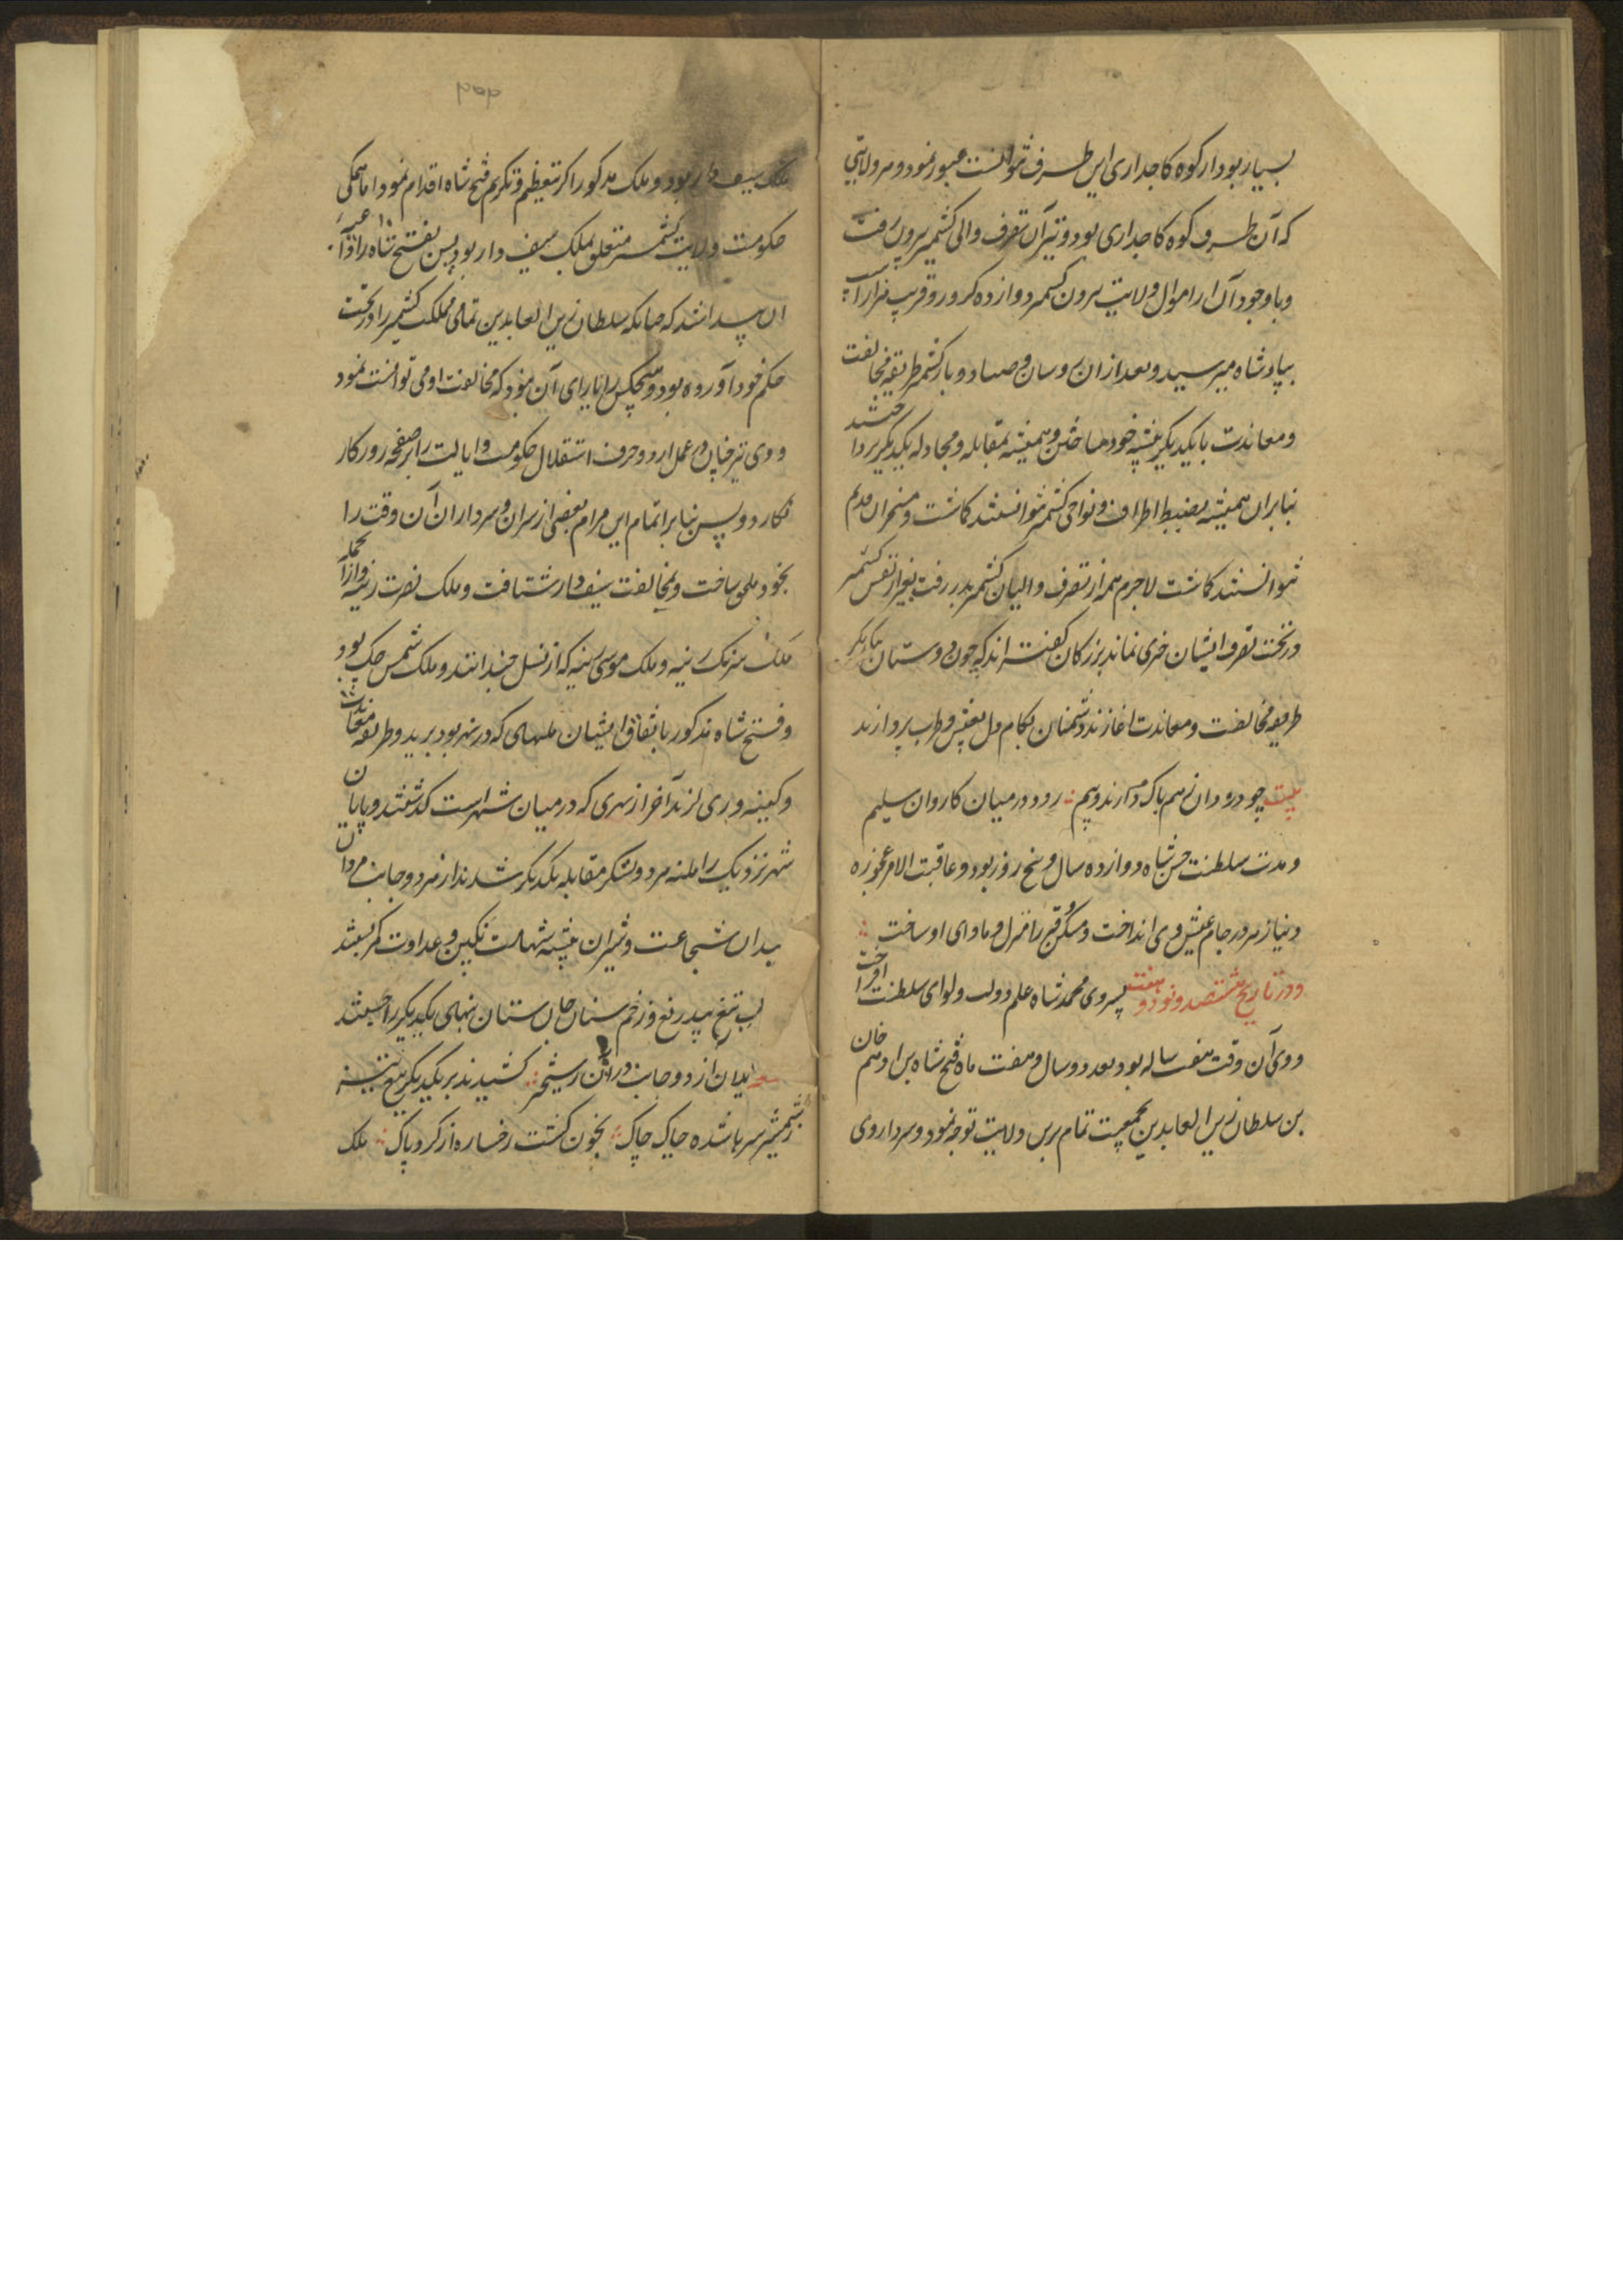 بسیار بود از کوه کاجداری این طرف نتوانست عبور نمود و هر ولایتی
که آن طرف کوه کاجداری بود و نیز آن تصرف والی کشمیر بیرون رفت
و با وجود آن از اموال ولایت بیرون کشمیر دوازده کرور و قریب هزار
بپادشاه میرسید و بعد از ان روسان و صنادید بار کشمیر طریقه مخالفت
و معاندت با یکدیگر پیشه خود ساختن و همیشه بمقابله و مجادله یکدیگر پرداختند
بنابران همیشه بضبط اطراف و نواحی کشمیر نتوانستند کماشت و مسخران قدیم
نتوانستند کماشت لاجرم همه از تصرف والیان کشمیر بدر رفت بغیر از نفس کشمیر
در تخت تصرف ایشان چیزی نماند بزرکان کفته اند که چون دوستان با یکدیگر
طریقه مخالفت و معاندت اغازند دشمنان بکام دل بعیش و طرب پردازند
بیت چو دزدان زهم باک دارند و بیم رود در میان کاروان سلیم
و مدت سلطنت حسن شاه دوازده سال و پنج روز بود و عاقبت الامر عجوزه
دنیا زهر در جام عیش وی انداخت و مسکن قبر را منزل و ماوای او ساخت
و در تاریخ هشتصد و نود و هفت پسر وی محمد شاه علم دولت و لوای سلطنت افراخت
و وی آن وقت هفت ساله بود بعد دو سال و هفت ماه فتح شاه بن ادهم خان
بن سلطان زین العابدین بجمعیت تمام برین ولایت توجه نمود و سردار وی
ملک سیف دار بود و ملک مذکور اکر بتعظیم و تکریم فتح شاه اقدام نمود اما همکی
حکومت ولایت کشمیر متعلق بملک سیف دار بود پس فتح شاه را داعیه
آن پیدا شد که چنانکه سلطان زین العابدین تمامی مملکت کشمیر را در تحت
حکم خود آورده بود و هیچکس را یارای آن نبود که مخالفت او می توانست نمود
و وی نیز همان عمل ارد و حرف استقلال حکومت و ایالت را بر صفحه روزکار
نکارد و پس بنابر اتمام این مرام بعضی از سران و سرداران آن وقت را
بخود ملحق ساخت و بمخالفت سیف دار شتافت و ملک نصرت رینه و از آنجمله
ملک سرنک رینه و ملک موسی رینه که از نسل چندانند و ملک شمس چک بود
و فتح شاه مذکور باتفاق ایشان پلهای که در شهر بود برید و طریقه معاندت
و کینه وری لزند آخر از نهری که در میان شهر است کذشتند و پایان
شهر نزدیک هر دو لشکر مقابله یکدیکر شدند از هر دو جانب مردان
میدان شجاعت و شیران بیشه شهامت بکین و عداوت کمر بستند
بتیغ بیدریغ و زخم سنان جان ستان تنهای یکدیگر را خستند
یلان از دو جانب دران رستخیز کشیدند بر یکدیکر تیغ تیز
ز شمشیر سرها شده چاک چاک بخون کشت رخساره از کرد پاک ملک